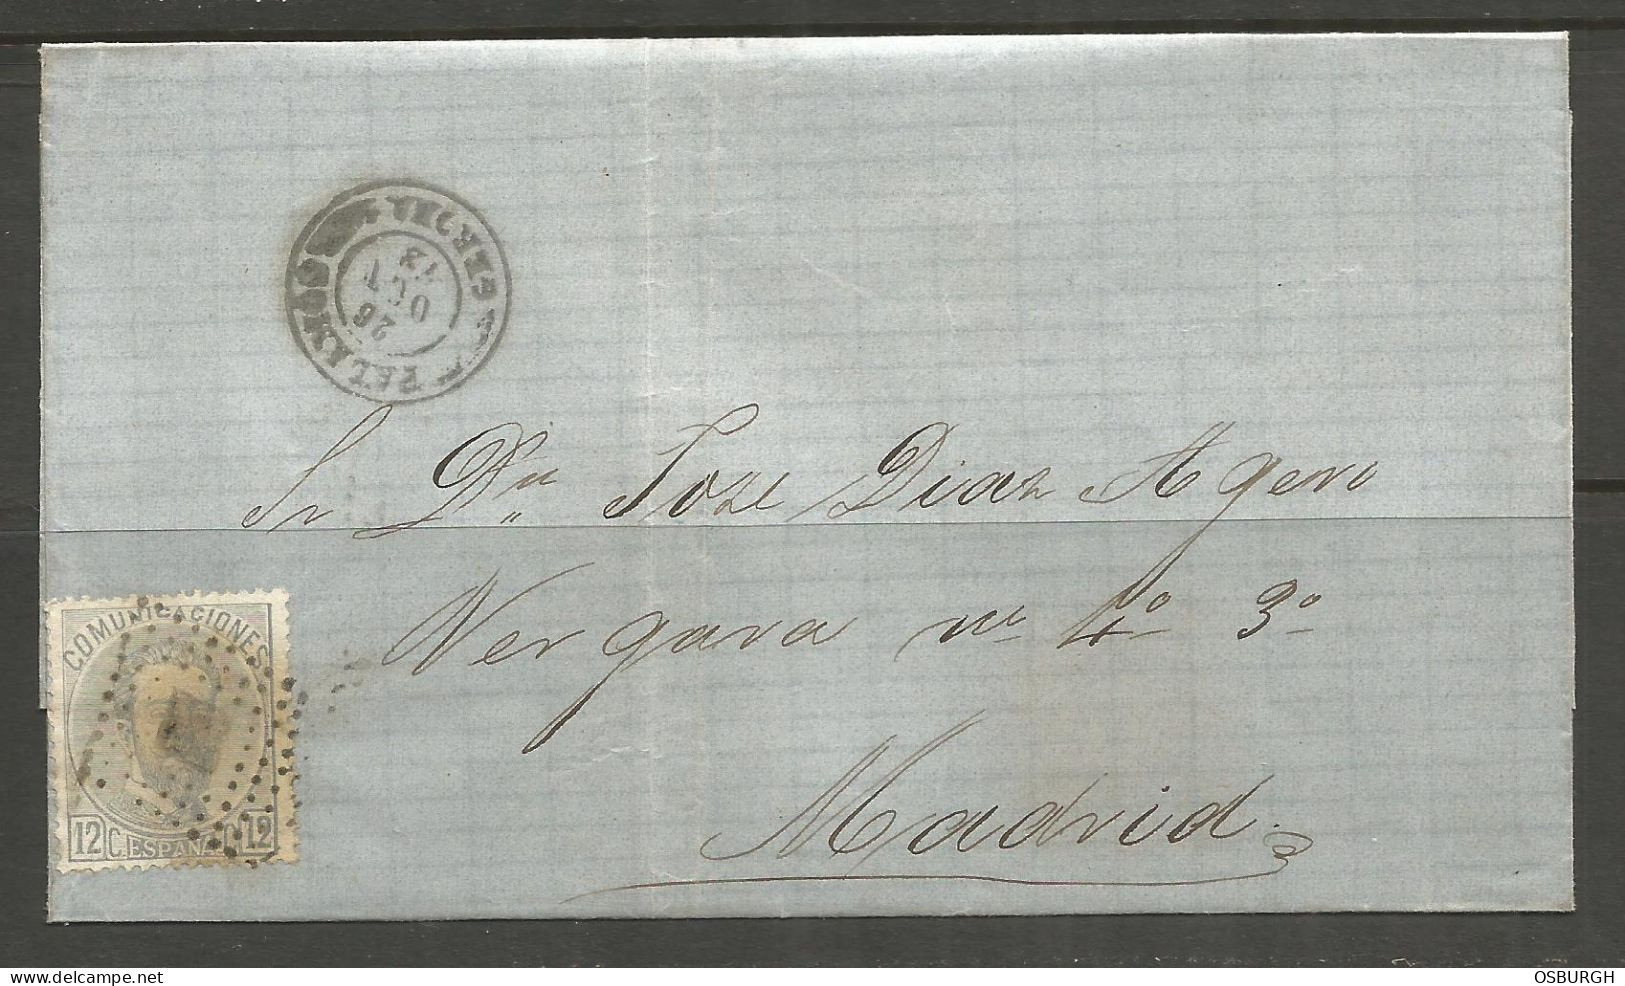 PALAMOS
GERONA
26
OCT
73
Sr Dn Jose Diaz Agero
Vergara no 4o 3o
Madrid
COMUNICACIONES
12 C. ESPAÑA C. 12
delcampe.net
OSBURGH